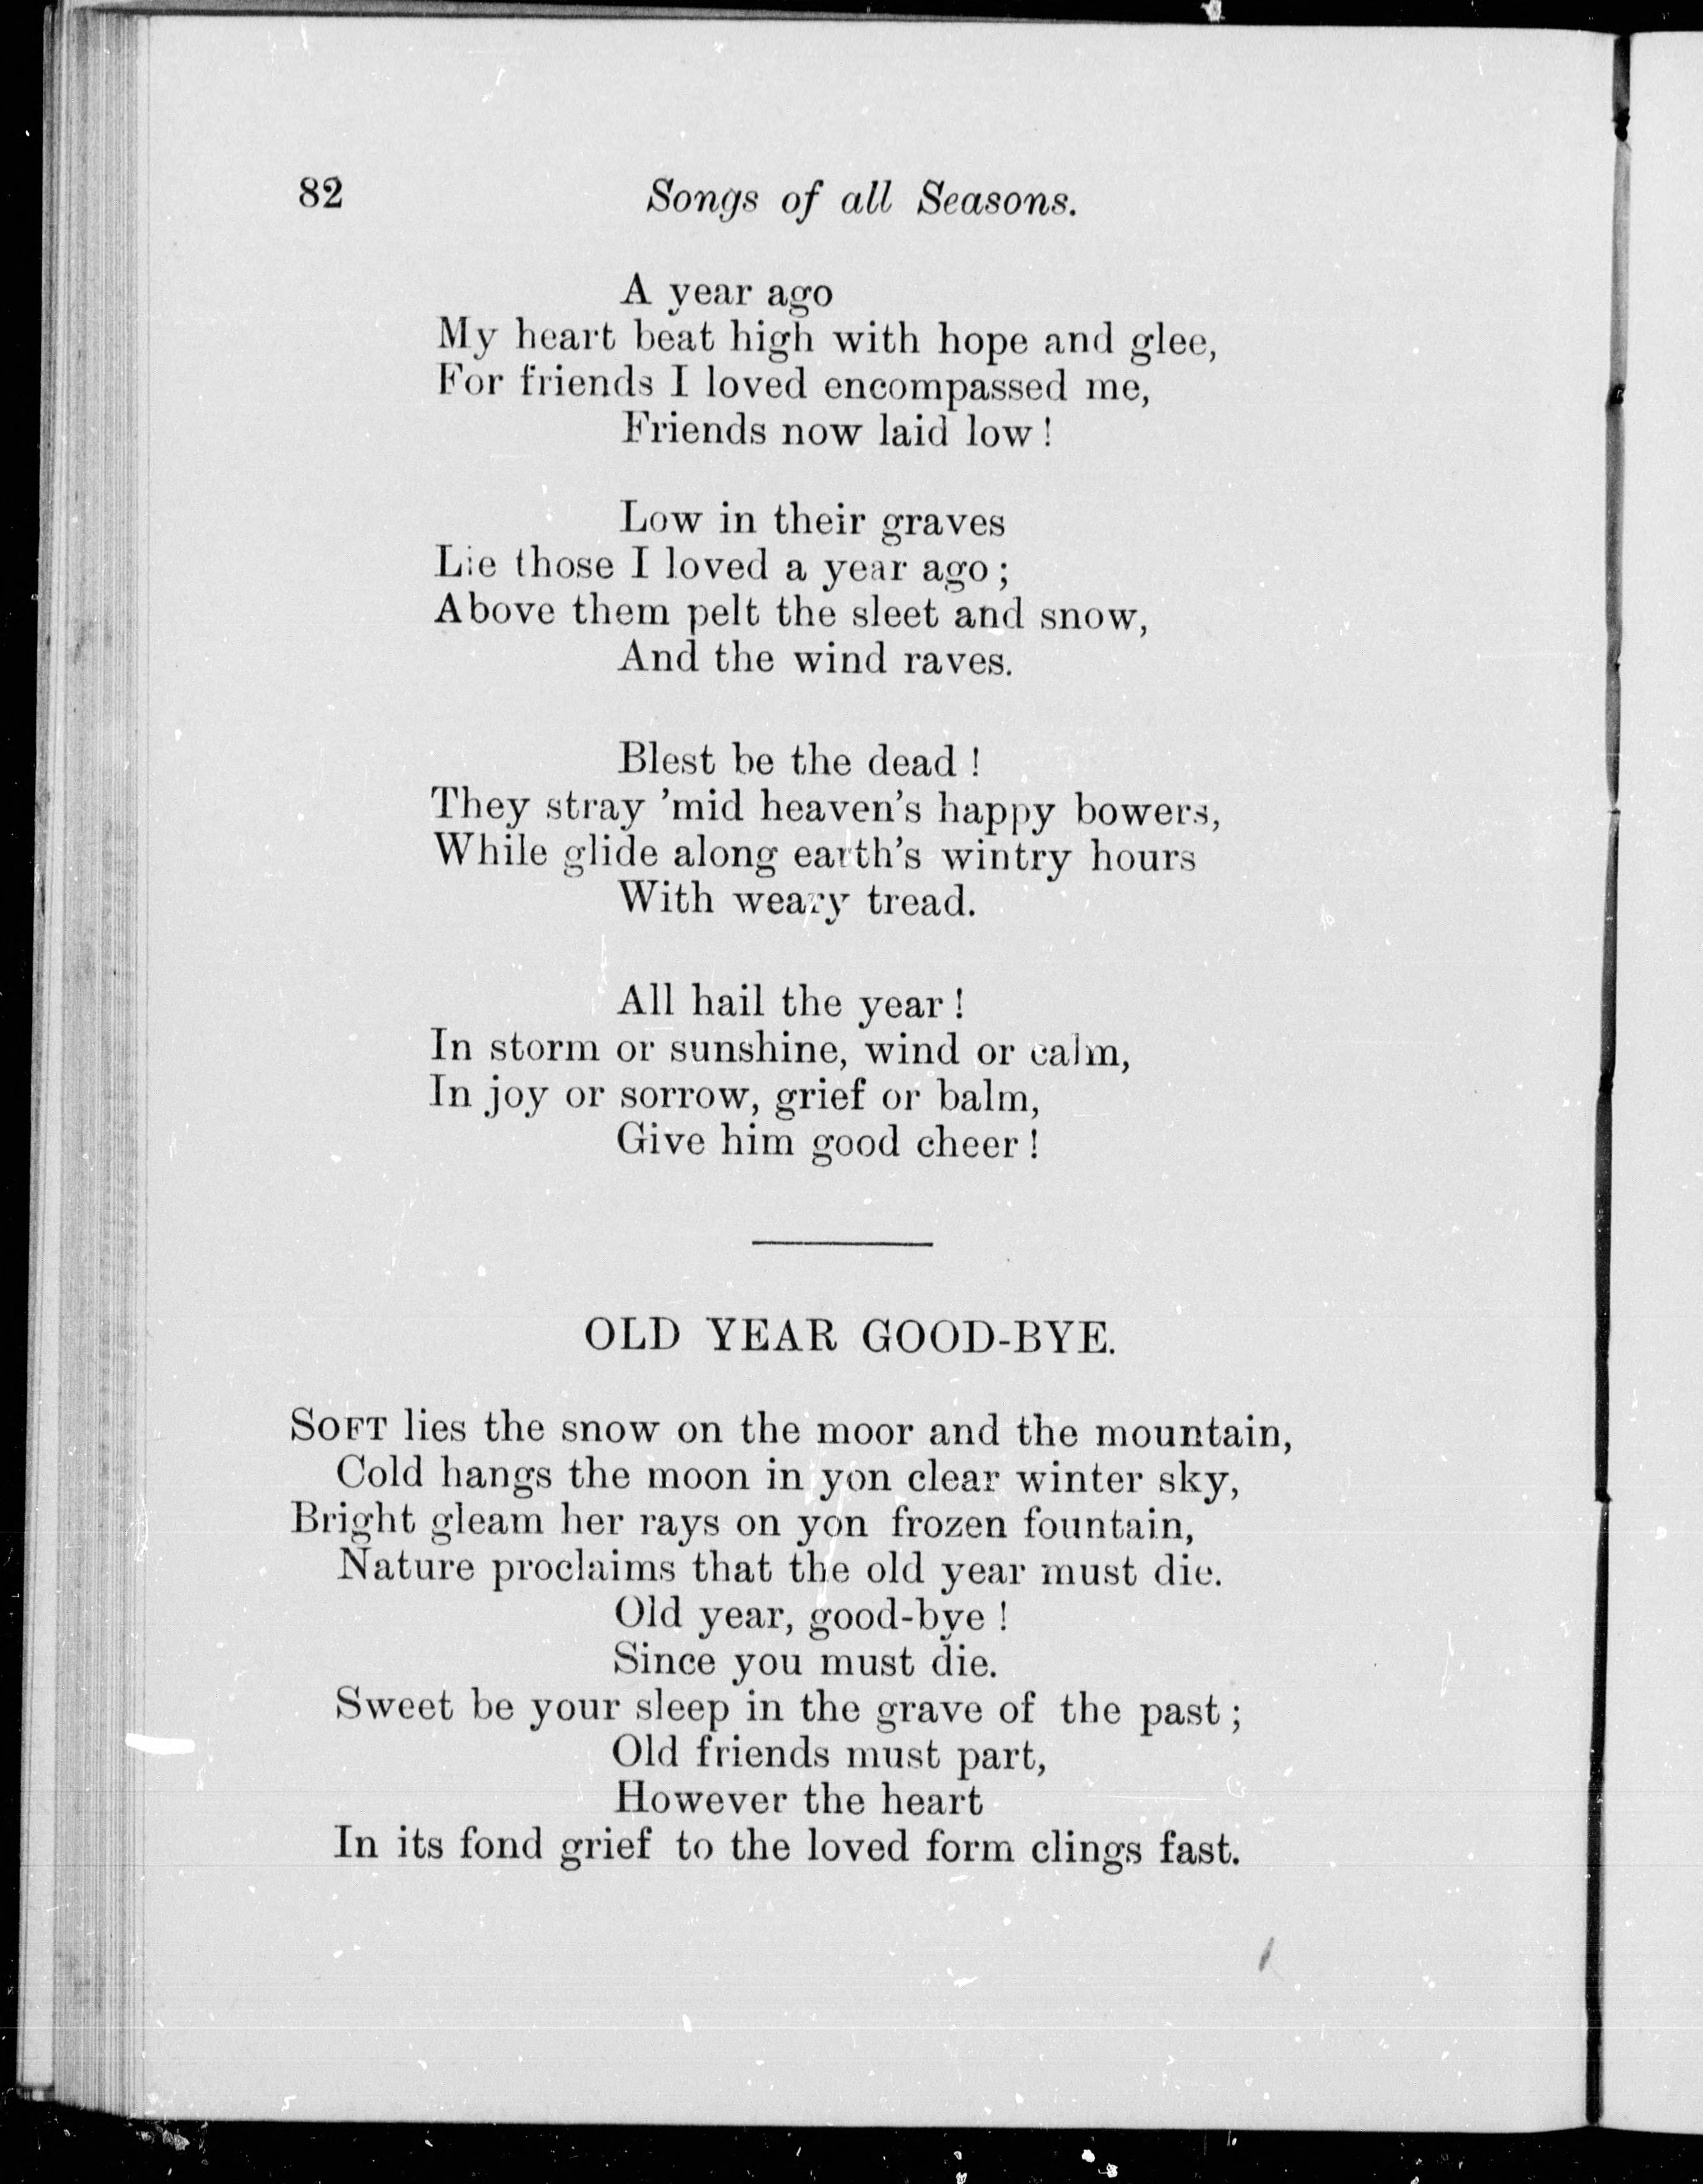 82 Songs of all Seasons.
A year ago
My heart beat high with hope and glee,
For friends I loved encompassed me,
Friends now laid low !
Low in their graves
Lie those I loved a year ago ;
Above them pelt the sleet and snow,
And the wind raves.
Blest be the dead !
They stray ’mid heaven’s happy bowers,
While glide along earth’s wintry hours
With weary tread.
All hail the year !
In storm or sunshine, wind or calm,
In joy or sorrow, grief or balm,
Give him good cheer !
OLD YEAR GOOD-BYE.
SOFT lies the snow on the moor and the mountain,
Cold hangs the moon in yon clear winter sky,
Bright gleam her rays on yon frozen fountain,
Nature proclaims that the old year must die.
Old year, good-bye !
Since you must die.
Sweet be your sleep in the grave of the past ;
Old friends must part,
However the heart
In its fond grief to the loved form clings fast.